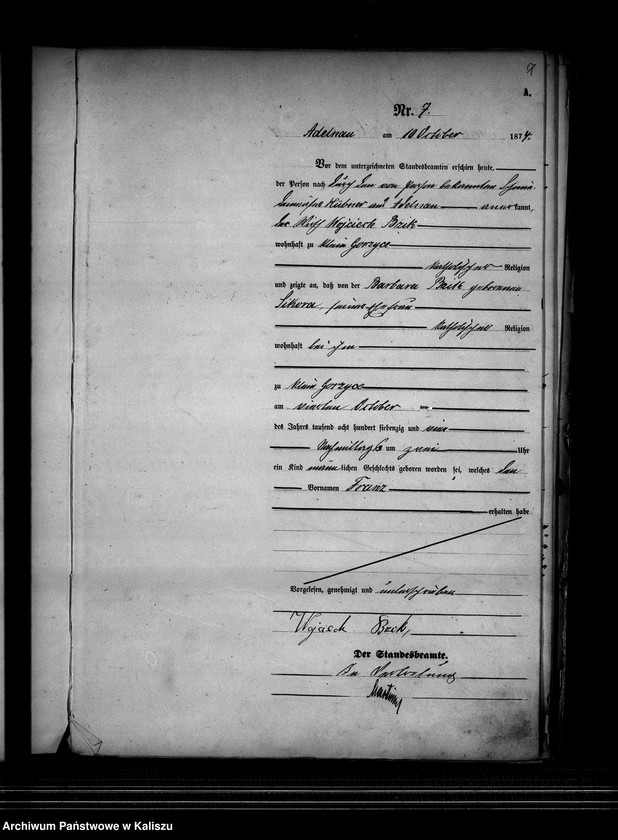 9
A.
Nr. 7.
Adelnau am 10 October 1874.
Vor dem unterzeichneten Standesbeamten erschien heute,
der Person nach durch den von Person bekannten
und Adelnau anerkannt,
der Wirth Wojciech Bzik
wohnhaft zu Klein Gorzyce
katholischer Religion
und zeigte an, daß von der Barbara Bzik geborenen
Sikora, seiner Ehefrau
katholischer Religion
wohnhaft bei ihm
zu Klein Gorzyce
am vierten October
des Jahres tausend acht hundert siebenzig und vier
Nachmittags um zwei Uhr
ein Kind männlichen Geschlechts geboren worden sei, welches den
Vornamen Franz
erhalten habe
Vorgelesen, genehmigt und unterschrieben
Wojciech Bzik,
Der Standesbeamte.
In Vertretung
Archiwum Państwowe w Kaliszu